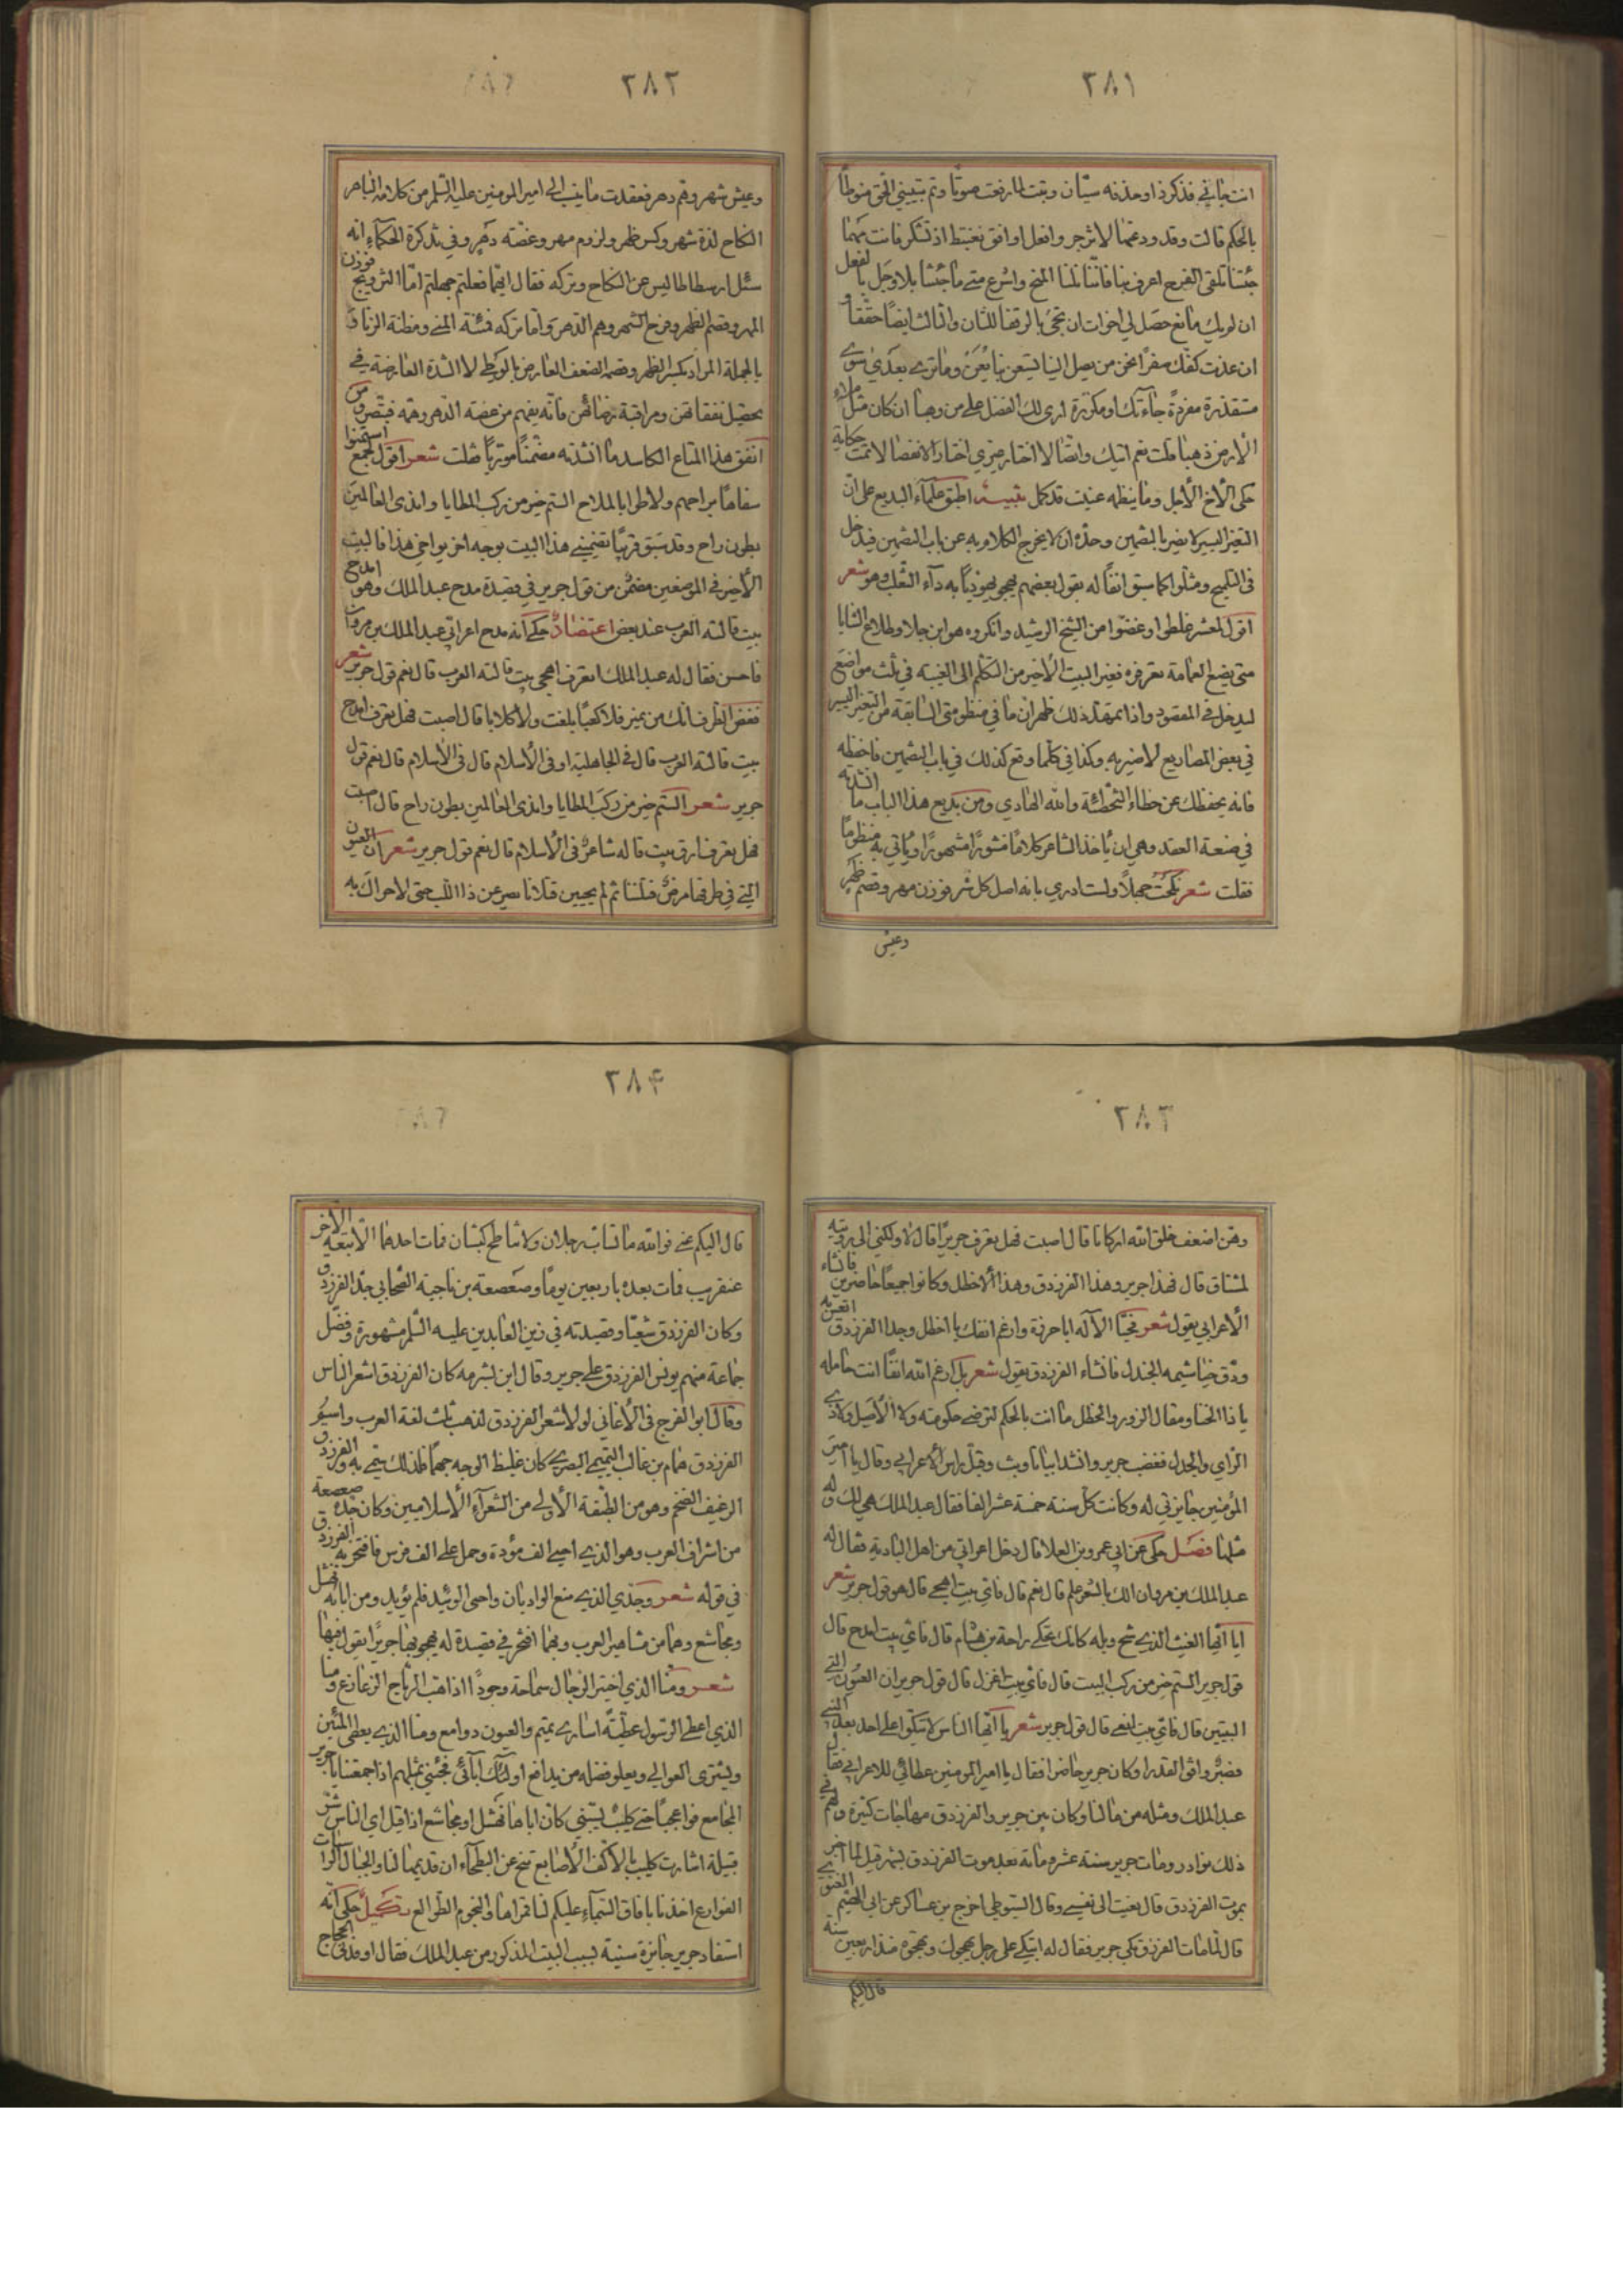 ٢٨١
بالحكم قالت وقد ودعتها لا تزجر وافعل اوافق تغتبط اذ تشكر فانت مهما
جئتنا تلقى الفرح اعرف بنا فاننا نلنا المنح واسرع متى ما جئتنا بلا وجل بافعل
ان لم يك مانع حصل لي اخوات ان تجى بالرفقا للثان والثالث ايضا حققا
ان عدت كفك صفرا نحن من يصل الينا يستعن بنا يعن وما ترى بعدى سوى
مستقذرة مفردة جاءتك او مكررة ارى لك الفضل على من وهبا ان كان مثل ملاء
الأرض ذهبا قلت نعم اتيك وايضا لا اختار غيرى اختار الانفضالا تمت حكاية
حكى الأخ الأجل وما ينظمه عنيت قد كمل تنبيه اطبق علماء البديع على ان
التغير اليسير لا يضر بالتضمين وحده ان لا يخرج الكلام به عن باب التضمين فيدخل
فى التلميح ومثلوا كما سبق انفا له بقول بعضهم يهجو يهوديا به دآء الثعلب وهو شعر
اقول لمعشر غلطوا وغضوا من الشيخ الرشيد وانكروه هو ابن جلا وطلاع الثنايا
متى يضع العمامة تعرفوه فغير البيت الأخير من التكلم الى الغيبة في ثلث مواضع
ليدخل في المقصود واذا تمهد ذلك ظهر ان ما في منظومتى السابقة من التغير اليسير
في بعض المصاريع لا ضير به وكذا في كلما وقع كذلك في باب التضمين فاحفظه
فانه يحفظك عن خطاء التخطئة والله الهادي ومن بديع هذا الباب ما انشدته
في صنعة العقد وهي ان يأخذ الشاعر كلاما منثورا مشهورا ويأتي به منظوما
فقلت شعر نكحت جهلا ولست ادري بانه اصل كل شر فوزن مهر وقصم ظهر
وعيش
٢٨٢
وعيش شهر وهم دهر فعقدت ما ينسب الى امير المومنين عليه السلم من كلامه الباهر
النكاح لذة شهر وكسر ظهر ولزوم مهر وغصة دهر وفي تذكرة الحكمآء انه
سئل ارسطاطاليس عن النكاح وتركه فقال ايهما فعلتم جهلتم اما التزويج فوزن
المهر وقصم الظهر وفرح الشهر وهم الدهر واما تركه فسنة المنى ومظنة الزنا و
بالجملة المراد بكسر الظهر وقصمه الضعف العارض بالوطى لا الشدة العارضة في
تحصيل نفقاتهن ومراقبة رضائهن فانه يفهم من غصة الدهر وهمه فتبصر ومن
انفق هذا المتاع الكاسد ما انشدته مضمنا موريا فقلت شعر اقول لجمع استمنوا
سفاها براحهم ولاطوا بالملاح الستم خير من ركب المطايا واندى العالمين
بطون راح وقد سبق قريبا تضميني هذا البيت بوجه اخر يواخى هذا فالبيت
الأخير في الموضعين مضمن من قول جرير في قصيدة مدح عبد الملك وهو امدح
بيت قالته العرب عند بعض اعتضاد حكى انه مدح اعرابي عبد الملك بن مروان
فاحسن فقال له عبد الملك اتعرف اهجى بيت قالته العرب قال نعم قول جرير شعر
فغض الطرف انك من نمير فلا كعبا بلغت ولا كلابا قال اصبت فهل تعرف امدح
بيت قالته العرب قال في الجاهلية او فى الأسلام قال فى الأسلام قال نعم قول
جرير شعر الستم خير من ركب المطايا واندى العالمين بطون راح قال اصبت
فهل تعرف ارق بيت قاله شاعر فى الأسلام قال نعم قول جرير شعر ان العيون
التي في طرفها مرض قتلننا ثم لم يحيين قتلانا يصرعن ذا اللب حتى لا حراك به
٢٨٣
وهن اضعف خلق الله اركانا قال اصبت فهل تعرف جريرا قال لا ولكنى الى رويته
لمشتاق قال فهذا جرير وهذا الفرزدق وهذا الاخطل وكانوا جميعا حاضرين فانشاء
الأعرابي يقول شعر فحيا الأله ابا حرزة وارغم انفك يا اخطل وجدا الفرزدق اتعس به
ودق خياشيمه الجندل فانشاء الفرزدق يقول شعر بل ارغم الله انفا انت حامله
يا ذا الخنا ومقال الزور والخطل ما انت بالحكم الترضى حكومته ولا الأصيل ولا ذي
الرأي والجدل فغضب جرير وانشد ابياتا وثب وقبل رأس الأعرابي وقال يا امير
المؤمنين جايزتي له وكانت كل سنة خمسة عشر الفا فقال عبد الملك هي لك وله
مثلها فصل حكى عن ابي عمرو بن العلا قال دخل اعرابي من اهل البادية فقال له
عبد الملك بن مروان الك بالشعر علم قال نعم قال فاي بيت اهجى قال هو قول جرير شعر
قول جرير الستم خير من ركب البيت قال فاي بيت اغزل قال قول جرير ان العيون التي
فضبر وافى القدر اوكان جرير حاضرا فقال يا امير المومنين عطائي للاعرابي فقال
عبد الملك ومثله من مالنا وكان بين جرير والفرزدق مهاجات كثيرة ولهم في
ذلك نوادر ومات جرير سنة عشر ومائة بعد موت الفرزدق بشهر قيل لما اخبر
بموت الفرزدق قال نعيت الى نفسي وقال السيوطي اخرج بن عساكر عن ابي الهيثم الغنوى
قال لما مات الفرزدق بكى جرير فقال له ابتكي على رجل يهجوك وتهجوه منذ اربعين سنة
قال اليكم
٢٨۴
قال اليكم عني فوالله ما تساب رجلان ولا تناطح كبشان فمات احدهما الا تبعه الأخر
عنقريب فمات بعده باربعين يوما وصعصعة بن ناجية الصحابي جد الفرزدق
وكان الفرزدق شيعيا وقصيدته في زين العابدين عليه السلم مشهورة وفضل
جماعة منهم يونس الفرزدق على جرير وقال ابن شبرمه كان الفرزدق اشعر الناس
وقال ابو الفرج فى الأغاني لولا شعر الفرزدق لذهب ثلث لغة العرب واسم
الفرزدق همام بن غالب التميمي البصري كان غليظ الوجه جهما فلذلك سمي به والفرزدق
الرغيف الضخم وهو من الطبقة الأولى من الشعرآء الأسلاميين وكان جده صعصعة
من اشراف العرب وهو الذي احيى الف مؤدة وحمل على الف فرس فافتخر به الفرزدق
في قوله شعر وجدي الذي منع الوادات واحى الوئيد فلم يوئد ومن ابائه نهشل
ومجاشع وهما من مشاهير العرب وبهما افتخر في قصيدة له يهجو بها جريرا يقول فيها
شعر ومنا الذي اختير الرجال سماحة وجودا اذا هب الرياح الزعازع ومنا
الذي اعطى الرسول عطية اسارى تميم والعيون دوامع ومنا الذي يعطى المئين
ويشترى العوالي ويعلو فضله من يدافع اولئك آبائي فجئنى بمثلهم اذا جمعتنا يا جرير
المجامع فوا عجبا حتى كليب تسبني كان اباها نهشل او مجاشع اذا قيل اي الناس شر
قبيلة اشارت كليب بالأكف الأصابع تنح عن البطحآء ان قديمها لنا والجبال الراسيات
الفوارع اخذنا بافاق السمآء عليكم لنا قمراها والنجوم الطوالع تكميل حكى انه
استفاد جرير جايزة سنية بسبب البيت المذكور من عبد الملك فقال اوفدنى الحجاج